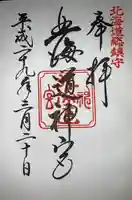 北海道総鎮守
奉拝
北海道神宮
平成二十九年三月二十日